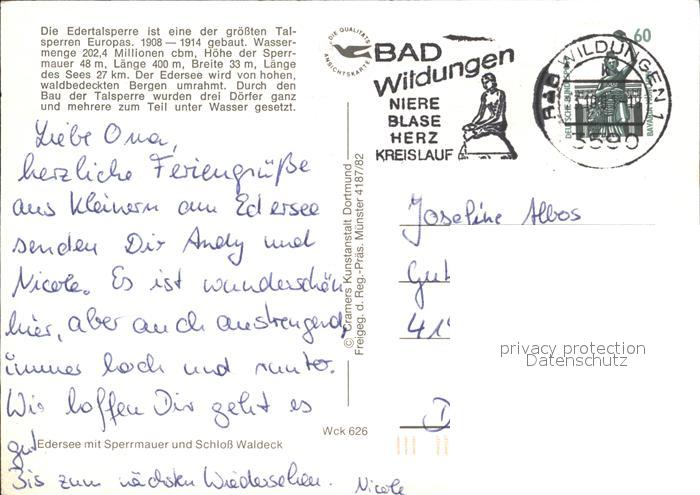 Die Edertalsperre ist eine der größten Tal-
sperren Europas. 1908 — 1914 gebaut. Wasser-
menge 202,4 Millionen cbm, Höhe der Sperr-
mauer 48 m, Länge 400 m, Breite 33 m, Länge
des Sees 27 km. Der Edersee wird von hohen,
waldbedeckten Bergen umrahmt. Durch den
Bau der Talsperre wurden drei Dörfer ganz
und mehrere zum Teil unter Wasser gesetzt.
Liebe Oma,
herzliche Feriengrüße
aus Kleinern am Edersee
senden Dir Andy und
Nicole. Es ist wunderschön
hier, aber auch anstrengend,
immer hoch und runter.
Wir hoffen Dir geht es
gut.
Edersee mit Sperrmauer und Schloß Waldeck
Bis zum nächsten Wiedersehen.
Nicole
Wck 626
© Cramers Kunstanstalt Dortmund
Freigeg. d. Reg.-Präs. Münster 4187/82
DIE QUALITÄTS
ANSICHTSKARTE
BAD
Wildungen
NIERE
BLASE
HERZ
KREISLAUF
BAD WILDUNGEN 1
3590
60
DEUTSCHE BUNDESPOST
Joseline Albos
Gut
41
D
privacy protection
Datenschutz